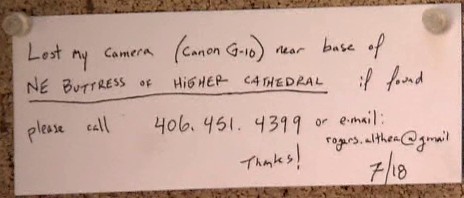 Lost my camera (Canon G-10) near base of
NE BUTTRESS OF HIGHER CATHEDRAL if found
please call 406.451.4399 or e-mail:
rogers.althea@gmail
Thanks!
7/18